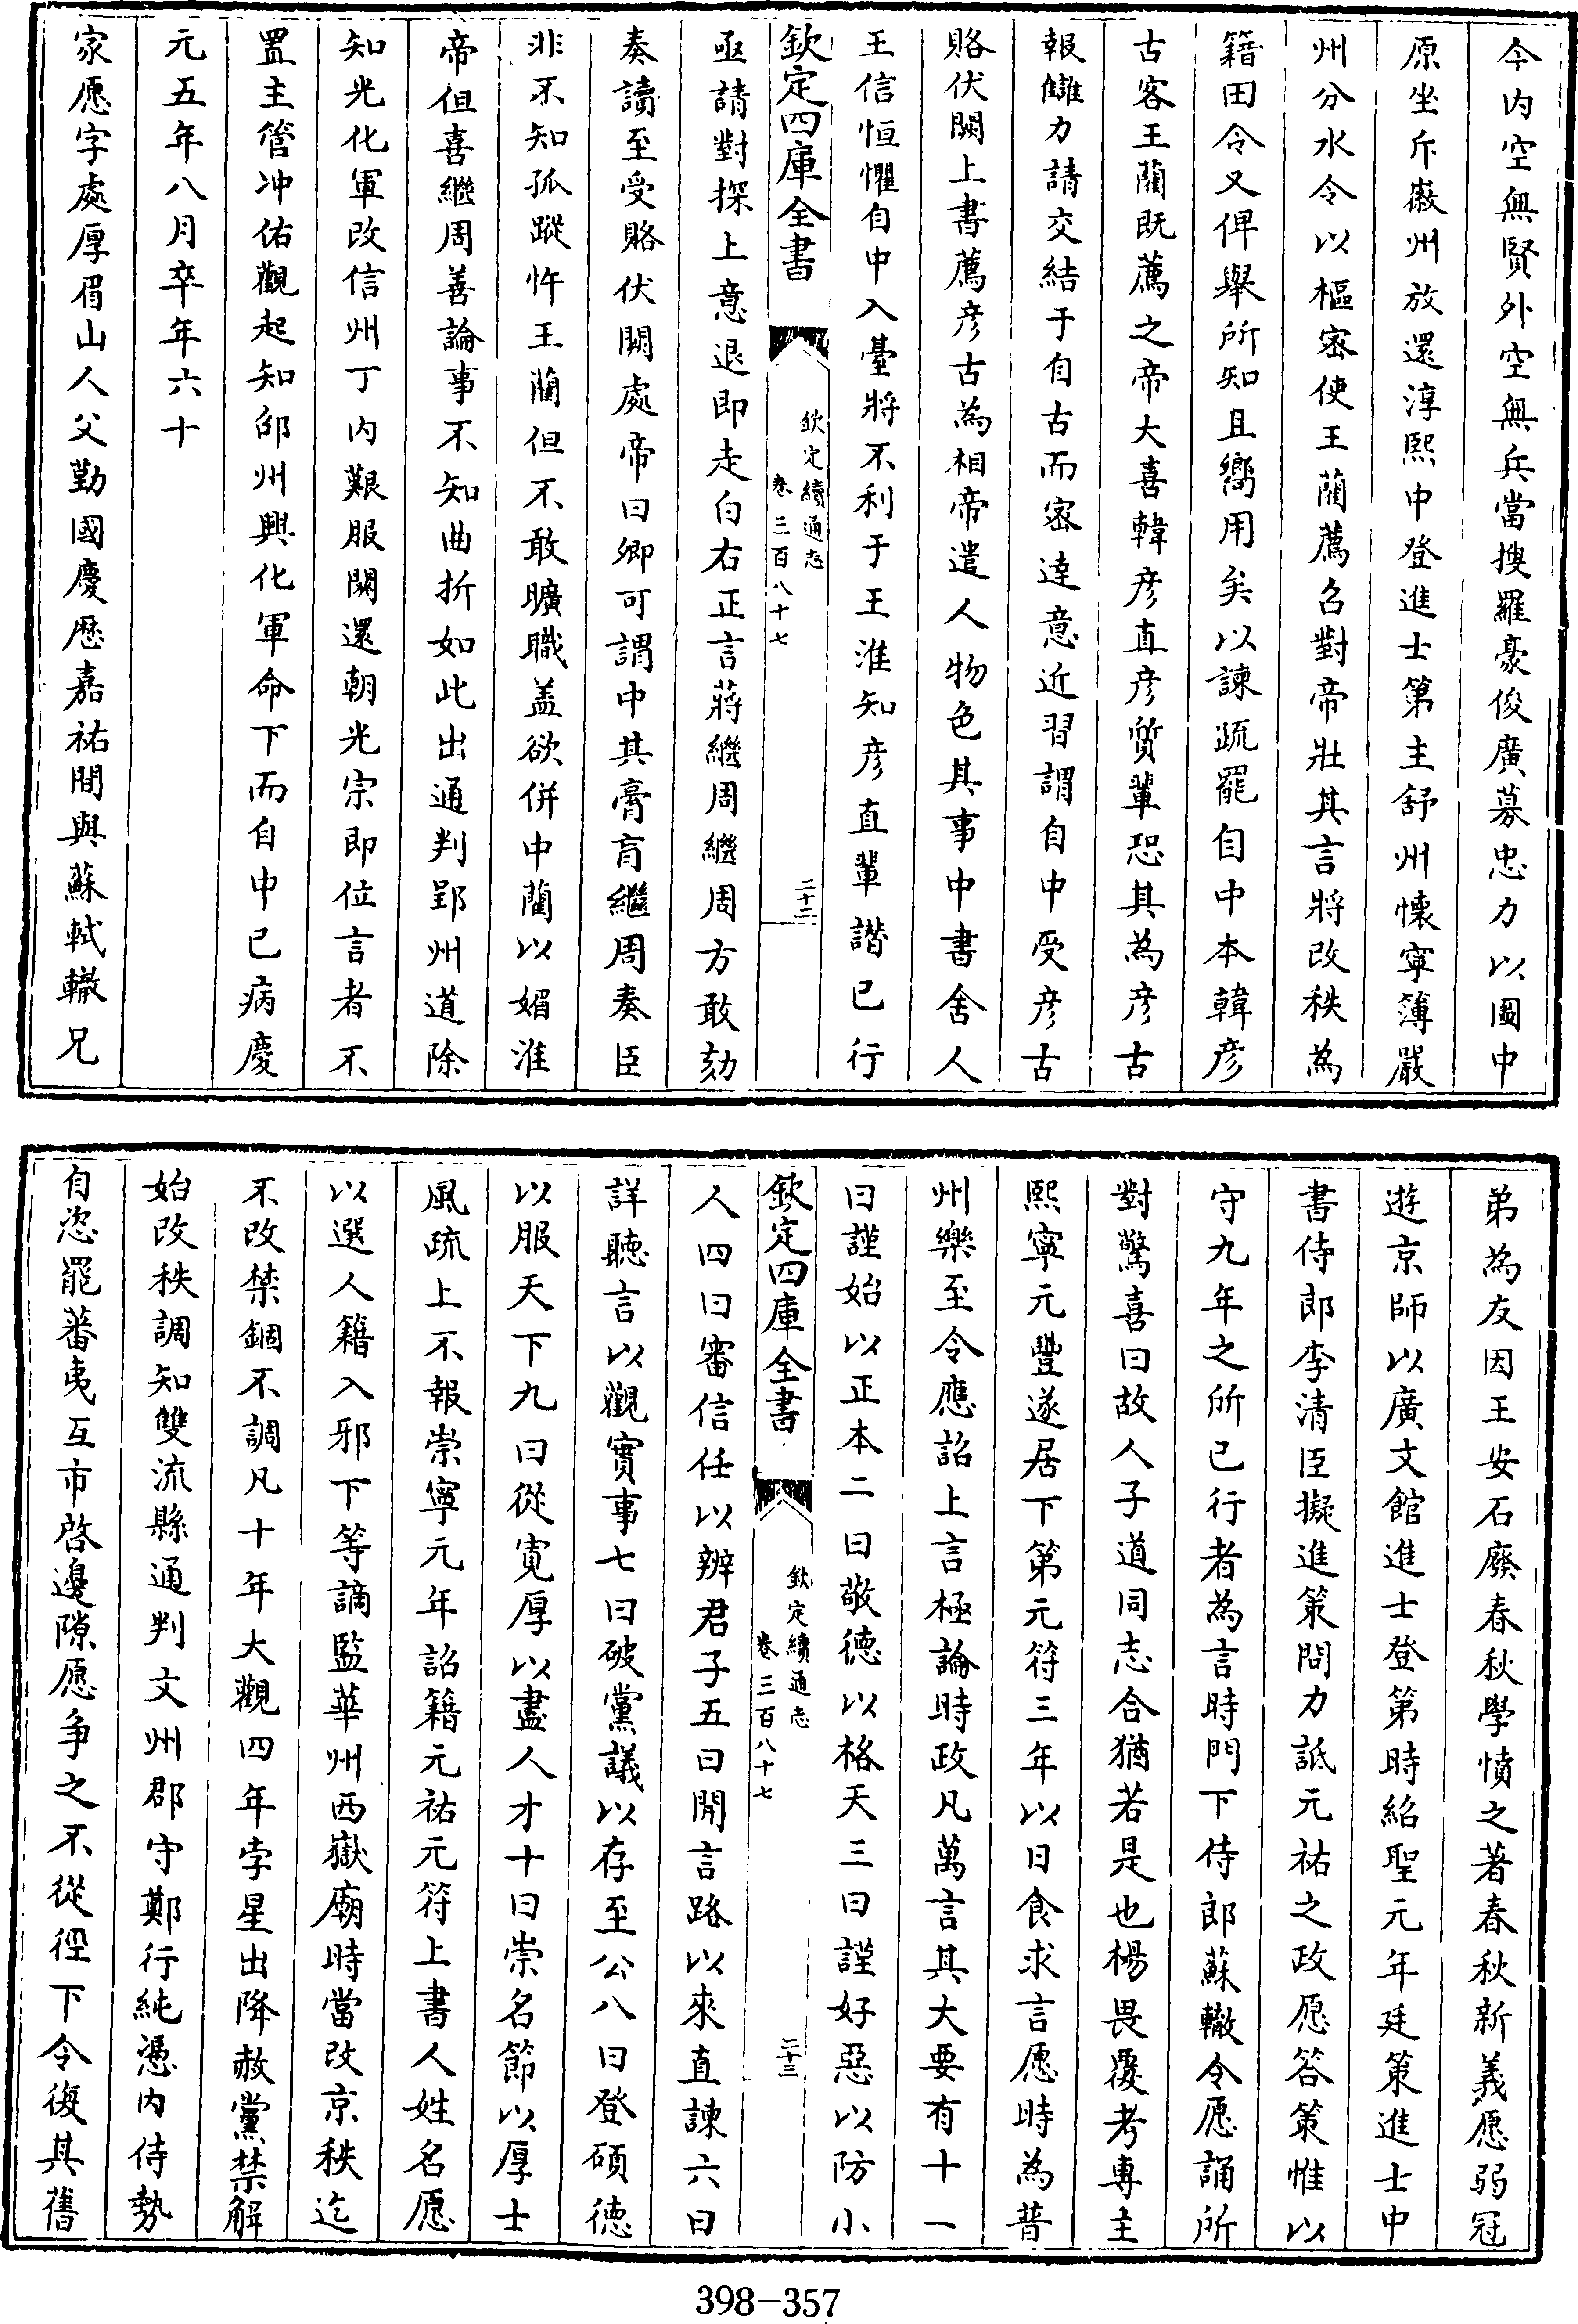 今内空無賢外空無兵當搜羅豪俊廣募忠力以圖中
原坐斥徽州放還淳熙中登進士第主舒州懷寧簿嚴
州分水令以樞密使王藺薦召對帝壯其言將改秩為
籍田令又俾舉所知且嚮用矣以諫疏罷自中本韓彦
古客王藺既薦之帝大喜韓彦直彦質輩恐其為彦古
報讎力請交結于自古而密達意近習謂自中受彦古
賂伏闕上書薦彦古為相帝遣人物色其事中書舍人
王信恒懼自中入臺將不利于王淮知彦直輩譖已行
欽定四庫全書
欽定續通志
卷三百八十七
二十二
亟請對探上意退即走白右正言蔣繼周繼周方敢劾
奏讀至受賂伏闕處帝曰卿可謂中其膏肓繼周奏臣
非不知孤蹤忤王藺但不敢曠職盖欲併中藺以媚淮
帝但喜繼周善論事不知曲折如此出通判郢州道除
知光化軍改信州丁内艱服闋還朝光宗即位言者不
置主管冲佑觀起知邵州興化軍命下而自中已病慶
元五年八月卒年六十
家愿字處厚眉山人父勤國慶歴嘉祐間與蘇軾轍兄
弟為友因王安石廢春秋學憤之著春秋新義愿弱冠
遊京師以廣文館進士登第時紹聖元年廷策進士中
書侍郎李清臣擬進策問力詆元祐之政愿答策惟以
守九年之所已行者為言時門下侍郎蘇轍令愿誦所
對驚喜曰故人子道同志合猶若是也楊畏覆考專主
熙寧元豐遂居下第元符三年以日食求言愿時為普
州樂至令應詔上言極論時政凡萬言其大要有十一
曰謹始以正本二曰敬徳以格天三曰謹好惡以防小
欽定四庫全書
欽定續通志
卷三百八十七
二十三
人四曰審信任以辨君子五曰開言路以來直諫六曰
詳聽言以觀實事七曰破黨議以存至公八曰登碩徳
以服天下九曰從寛厚以盡人才十曰崇名節以厚士
風疏上不報崇寧元年詔籍元祐元符上書人姓名愿
以選人籍入邪下等謫監華州西嶽廟時當改京秩迄
不改禁錮不調凡十年大觀四年孛星出降赦黨禁解
始改秩調知雙流縣通判文州郡守鄭行純憑内侍勢
自恣罷蕃夷互市啓邊隙愿争之不從徑下令復其舊
398-357